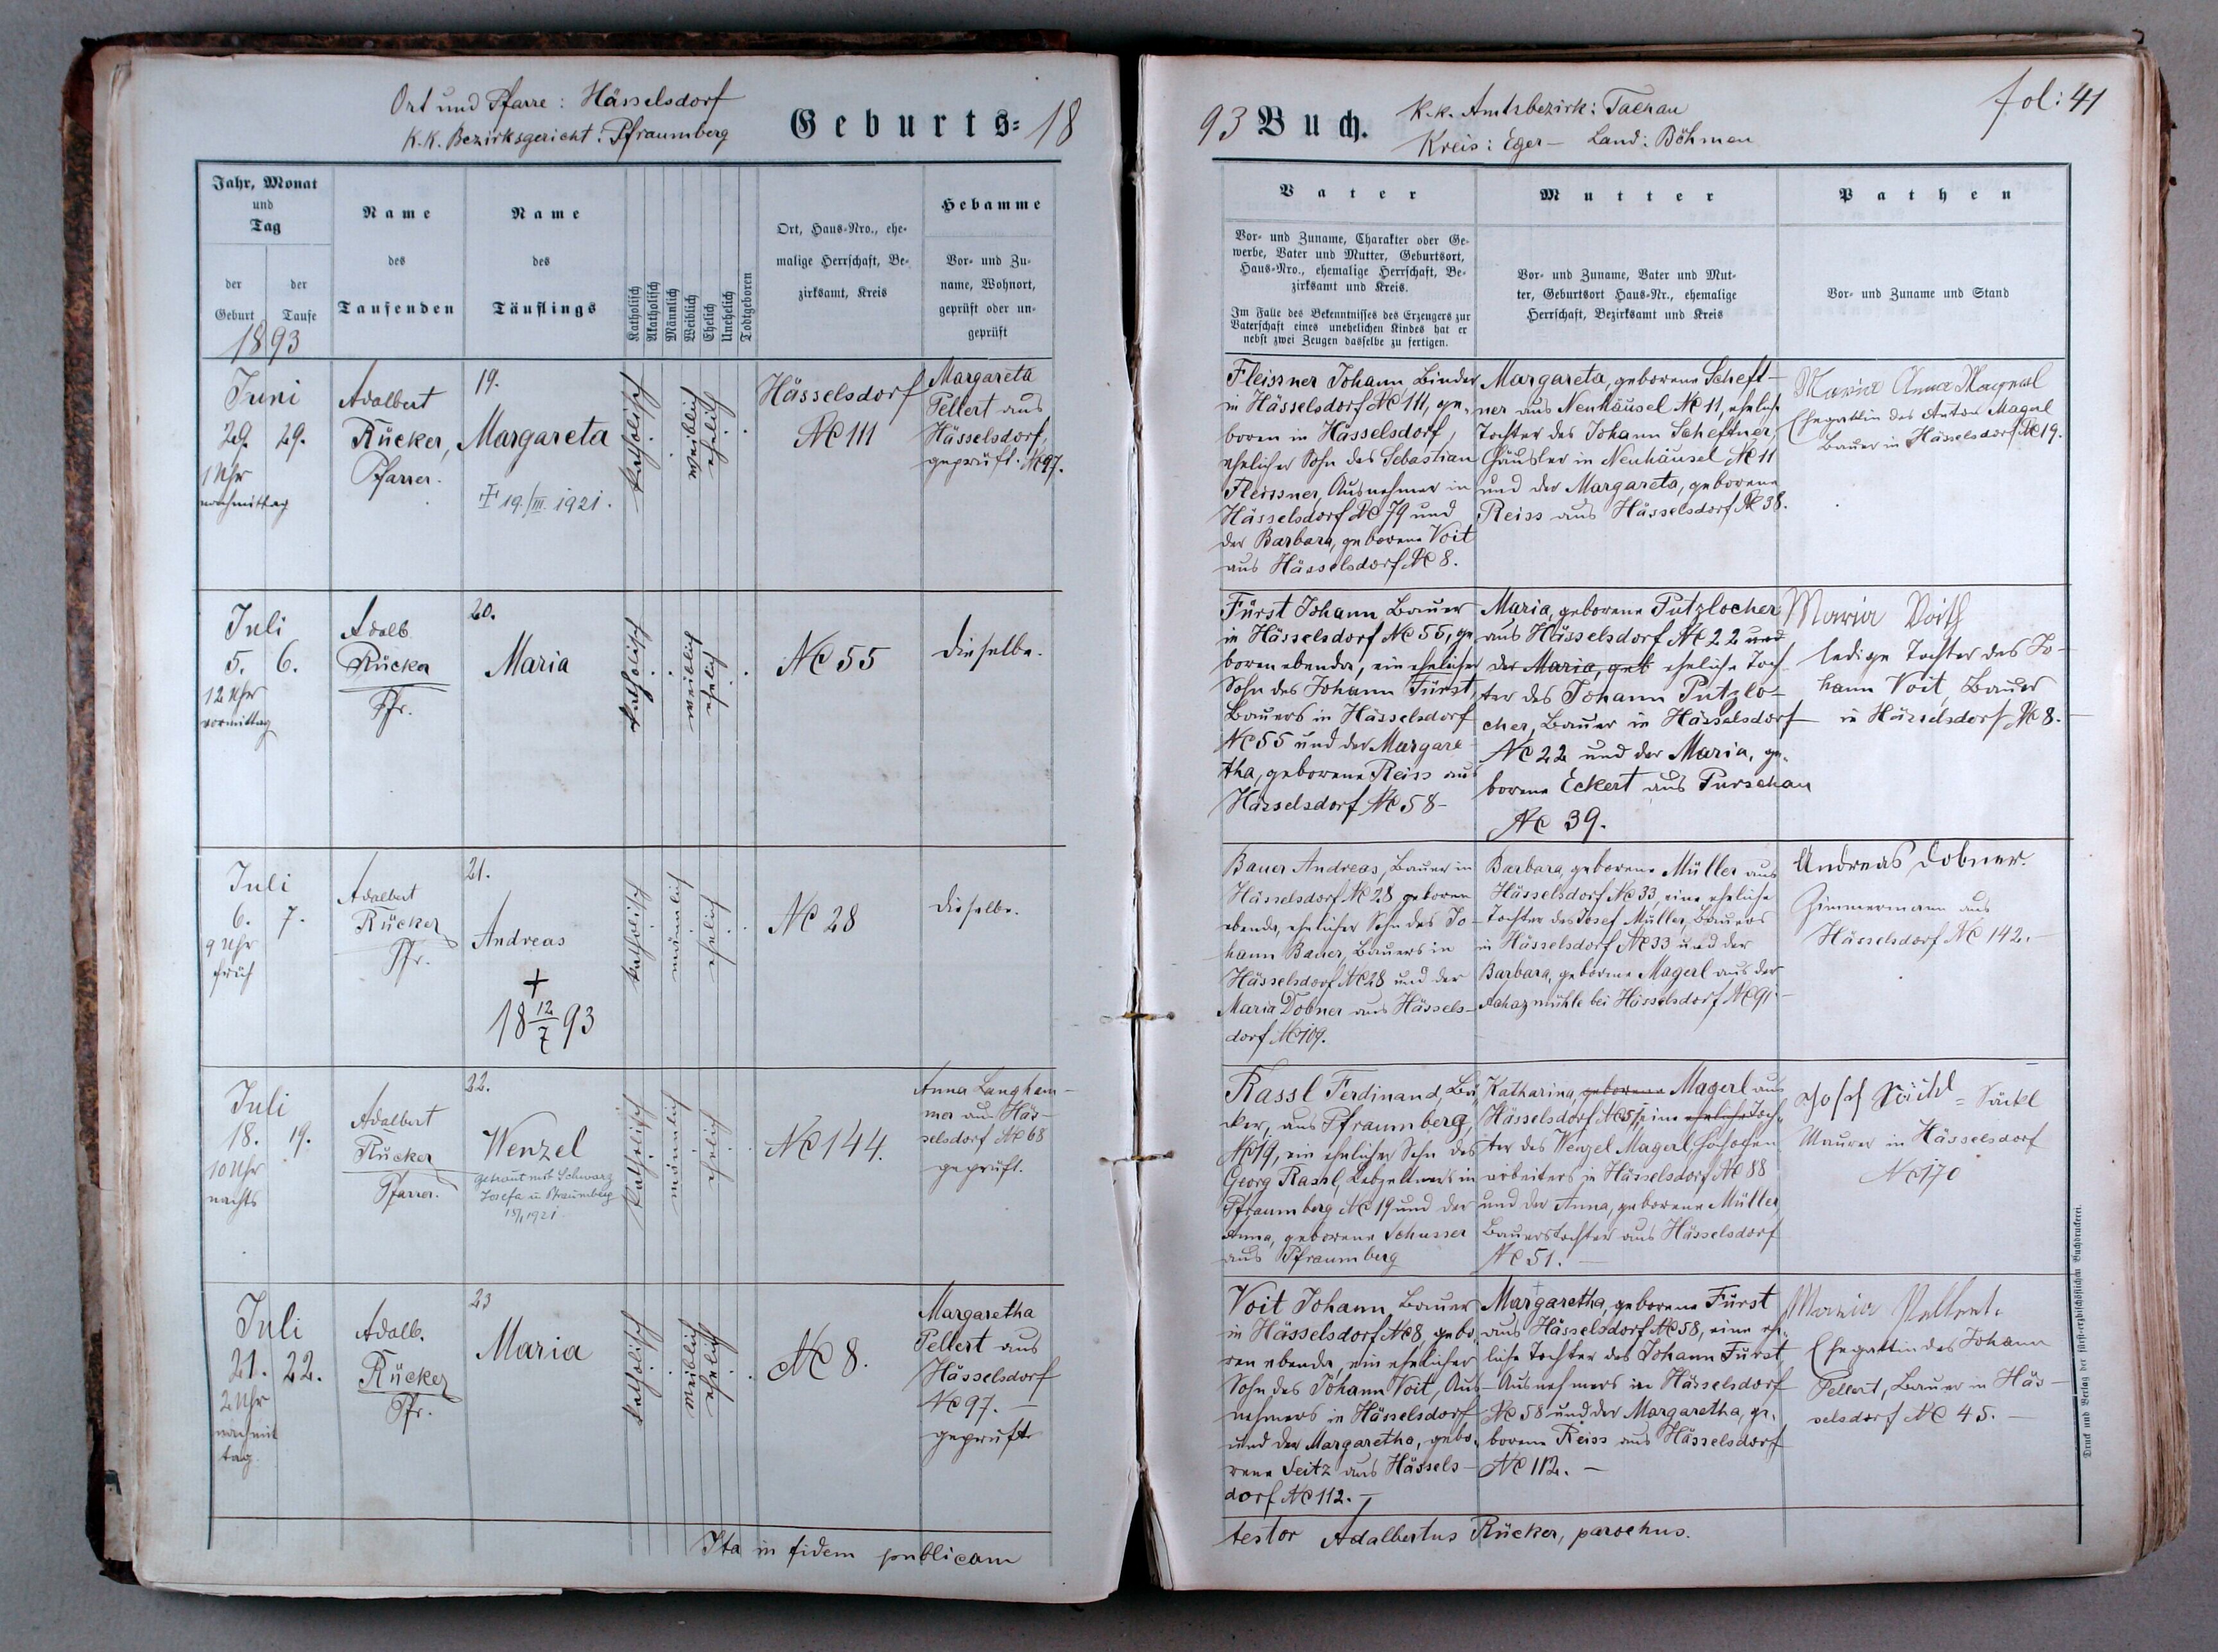 Ort und Pfarre: Hässelsdorf
K.K. Bezirksgericht: Pfraumberg
Geburts= 18
Jahr, Monat
und
Tag
der Geburt
der Taufe
1893
Name
des
Taufenden
Name
des
Täuflings
Katholisch
Akatholisch
Männlich
Weiblich
Ehelich
Unehelich
Todtgeboren
Ort, Haus-Nro., ehe-
malige Herrschaft, Be-
zirksamt, Kreis
Hebamme
Vor- und Zu-
name, Wohnort,
geprüft oder un-
geprüft
Juni
29. 29.
1 Uhr
nachmittag
Adalbert
Rücker,
Pfarrer.
19.
Margareta
19./III. 1921.
katholisch
weiblich
ehelich
Hässelsdorf
№ 111
Margareta
Pellert aus
Hässelsdorf,
geprüft. № 97.
Juli
5. 6.
12 Uhr
vormittag
Adalb.
Rücker
Pfr.
20.
Maria
katholisch
weiblich
ehelich
№ 55
dieselbe.
Juli
6. 7.
9 Uhr
früh
Adalbert
Rücker
Pfr.
21.
Andreas
+
18 12/7 93
katholisch
männlich
ehelich
№ 28
dieselbe.
Juli
18. 19.
10 Uhr
nachts
Adalbert
Rücker
Pfarrer.
22.
Wenzel
getraut mit Schwarz
Josefa in Pfraumberg
1921
katholisch
männlich
ehelich
№ 144.
Anna Langham-
mer aus Häs-
selsdorf № 68
geprüft.
Juli
21. 22.
2 Uhr
nachmit
tag.
Adalb.
Rücker
Pfr.
23
Maria
katholisch
weiblich
ehelich
№ 8.
Margaretha
Pellert aus
Hässelsdorf
№ 97. —
geprüft
Ita in fidem publicam
93 Buch.
K.K. Amtsbezirk: Tachau
Kreis: Eger — Land: Böhmen
fol: 41
Vater
Vor- und Zuname, Charakter oder Ge-
werbe, Vater und Mutter, Geburtsort,
Haus-Nro., ehemalige Herrschaft, Be-
zirksamt und Kreis.
Im Falle des Bekenntnisses des Erzeugers zur
Vaterschaft eines unehelichen Kindes hat er
nebst zwei Zeugen dasselbe zu fertigen.
Mutter
Vor- und Zuname, Vater und Mut-
ter, Geburtsort Haus-Nr., ehemalige
Herrschaft, Bezirksamt und Kreis
Pathen
Vor- und Zuname und Stand
Fleissner Johann, Binder
in Hässelsdorf № 111, ge-
boren in Hässelsdorf,
ehelicher Sohn des Sebastian
Fleissner, Ausnehmer in
Hässelsdorf № 79 und
der Barbara, geborene Voit
aus Hässelsdorf № 8.
Margareta, geborene Scheft-
ner aus Neuhäusel № 11, eheliche
Tochter des Johann Scheftner,
Häusler in Neuhäusel № 11
und der Margareta, geborene
Reiss aus Hässelsdorf № 38.
Maria Anna Magerl
Ehegattin des Anton Magerl
Bauer in Hässelsdorf № 19.
Fürst Johann, Bauer
in Hässelsdorf № 55, ge
boren ebenda, ein ehelicher
Sohn des Johann Fürst,
Bauers in Hässelsdorf
№ 55 und der Margare
tha, geborene Reiss aus
Hässelsdorf № 58 -
Maria, geborene Putzlocher
aus Hässelsdorf № 22 und
der Maria, geb eheliche Toch-
ter des Johann Putzlo-
cher, Bauer in Hässelsdorf
№ 22 und der Maria, ge-
borene Eckert aus Purschau
№ 39.
Maria Voith
ledige Tochter des Jo-
hann Voit, Bauer
in Hässelsdorf № 8. -
Bauer Andreas, Bauer in
Hässelsdorf № 28 geboren
ebenda, ehelicher Sohn des Jo-
hann Bauer, Bauers in
Hässelsdorf № 28 und der
Maria Dobner aus Hässels-
dorf № 109.
Barbara, geborene Müller aus
Hässelsdorf № 33, eine eheliche
Tochter des Josef Müller, Bauers
in Hässelsdorf № 33 und der
Barbara, geborene Magerl aus der
mühle bei Hässelsdorf № 91 -
Andreas Dobner.
Zimmermann aus
Hässelsdorf № 142. -
Rassl Ferdinand, Bä-
cker, aus Pfraumberg,
№ 19, ein ehelicher Sohn des
Georg Rassl, Lebzelters in
Pfraumberg № 19 und der
Anna, geborene Schusser
aus Pfraumberg
Katharina, geborene Magerl aus
Hässelsdorf № 51, eine eheliche Toch-
ter des Wenzel Magerl, Hochofen
arbeiters in Hässelsdorf № 88
und der Anna, geborene Müller,
Bauerstochter aus Hässelsdorf
№ 51. —
Josef Säckl = Säckl
Maurer in Hässelsdorf
№ 170
Voit Johann, Bauer
in Hässelsdorf № 8, gebo-
ren ebenda, ein ehelicher
Sohn des Johann Voit, Aus-
nehmers in Hässelsdorf
und der Margaretha, gebo-
rene Seitz aus Hässels-
dorf № 112. -
Margaretha, geborene Fürst
aus Hässelsdorf № 58, eine ehe-
liche Tochter des Johann Fürst,
Ausnehmers in Hässelsdorf
№ 58 und der Margaretha, ge-
borene Reiss aus Hässelsdorf
№ 112. -
Maria Pellert.
Ehegattin des Johann
Pellert, Bauer in Häs-
selsdorf № 45. —
testor Adalbertus Rücker, parochus.
Druck und Verlag der fürst-erzbischöflichen Buchdruckerei.